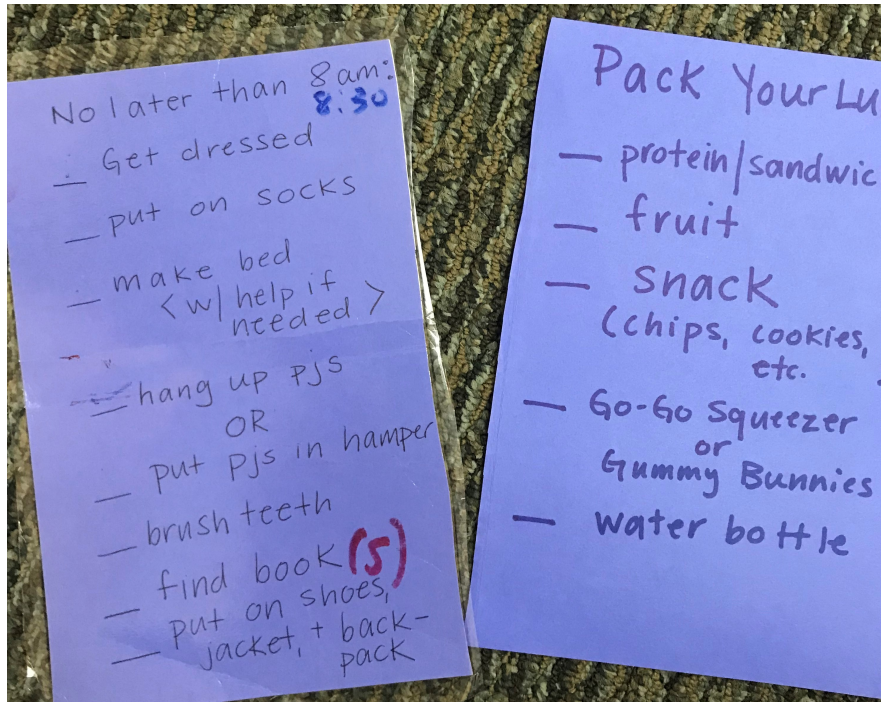 No later than 8am:
8:30
— Get dressed
— put on socks
— make bed
<w/ help if
needed>
— hang up pjs
OR
— put pjs in hamper
— brush teeth
— find book(s)
— put on shoes,
jacket, + back-
pack
Pack Your Lu
— protein/sandwic
— fruit
— snack
(chips, cookies,
etc.
— Go-Go Squeezer
or
Gummy Bunnies
— water bottle